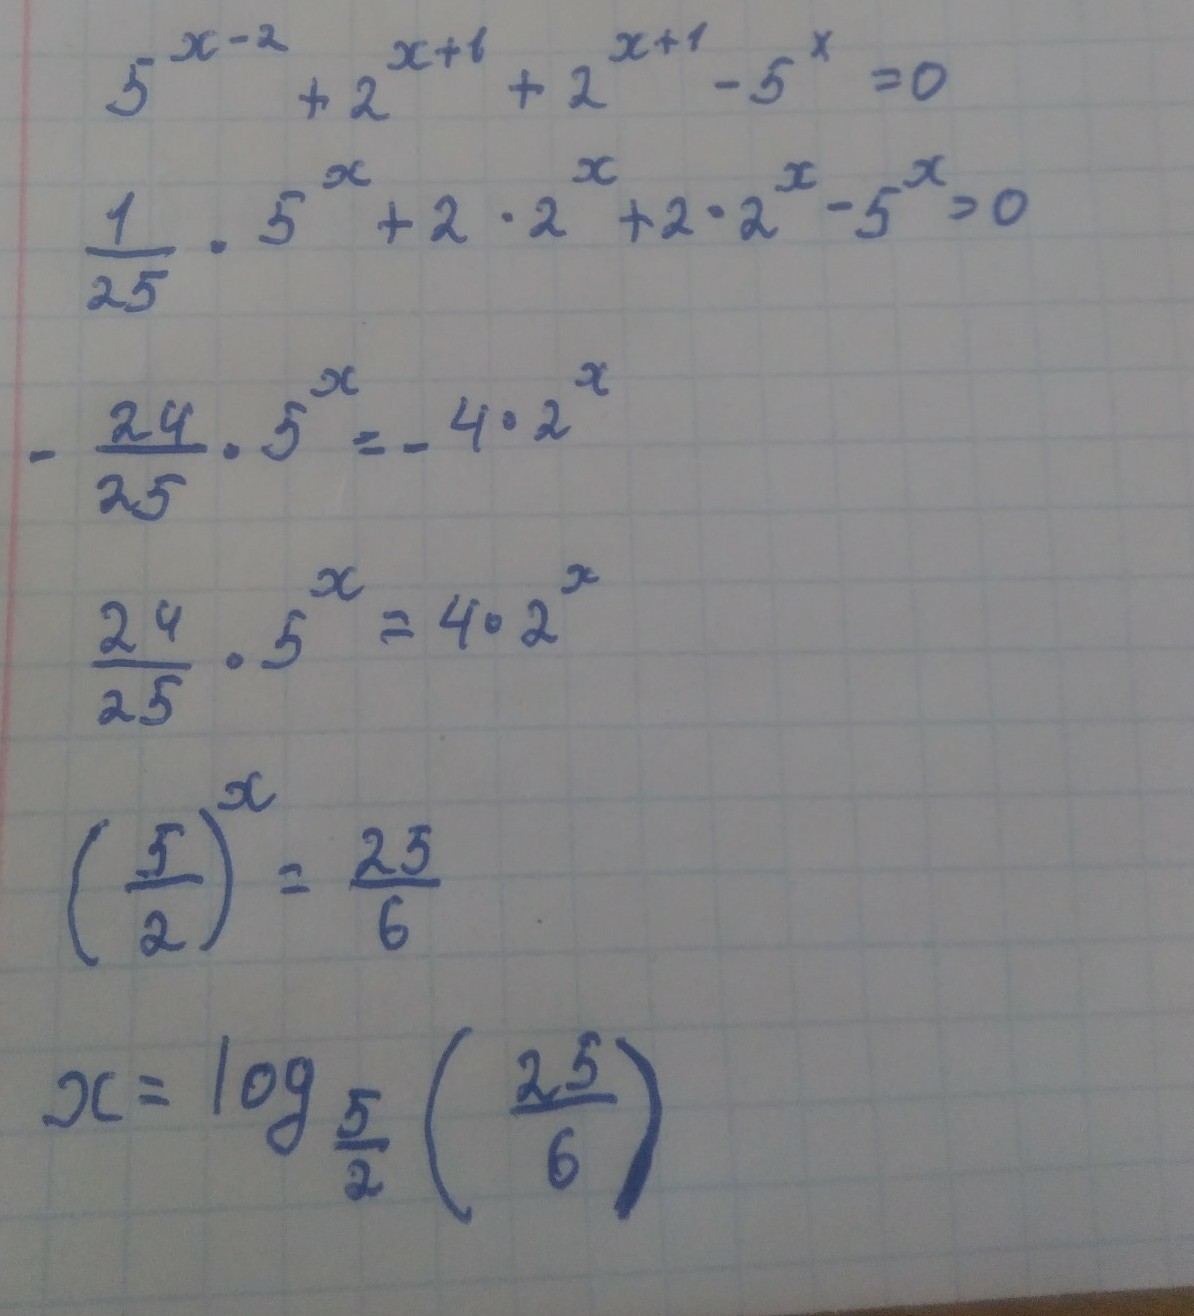 5^{x-2} + 2^{x+1} + 2^{x+1} - 5^x = 0
\frac{1}{25} · 5^x + 2 · 2^x + 2 · 2^x - 5^x = 0
- \frac{24}{25} · 5^x = - 4 · 2^x
\frac{24}{25} · 5^x = 4 · 2^x
(\frac{5}{2})^x = \frac{25}{6}
x = log_{\frac{5}{2}} (\frac{25}{6})